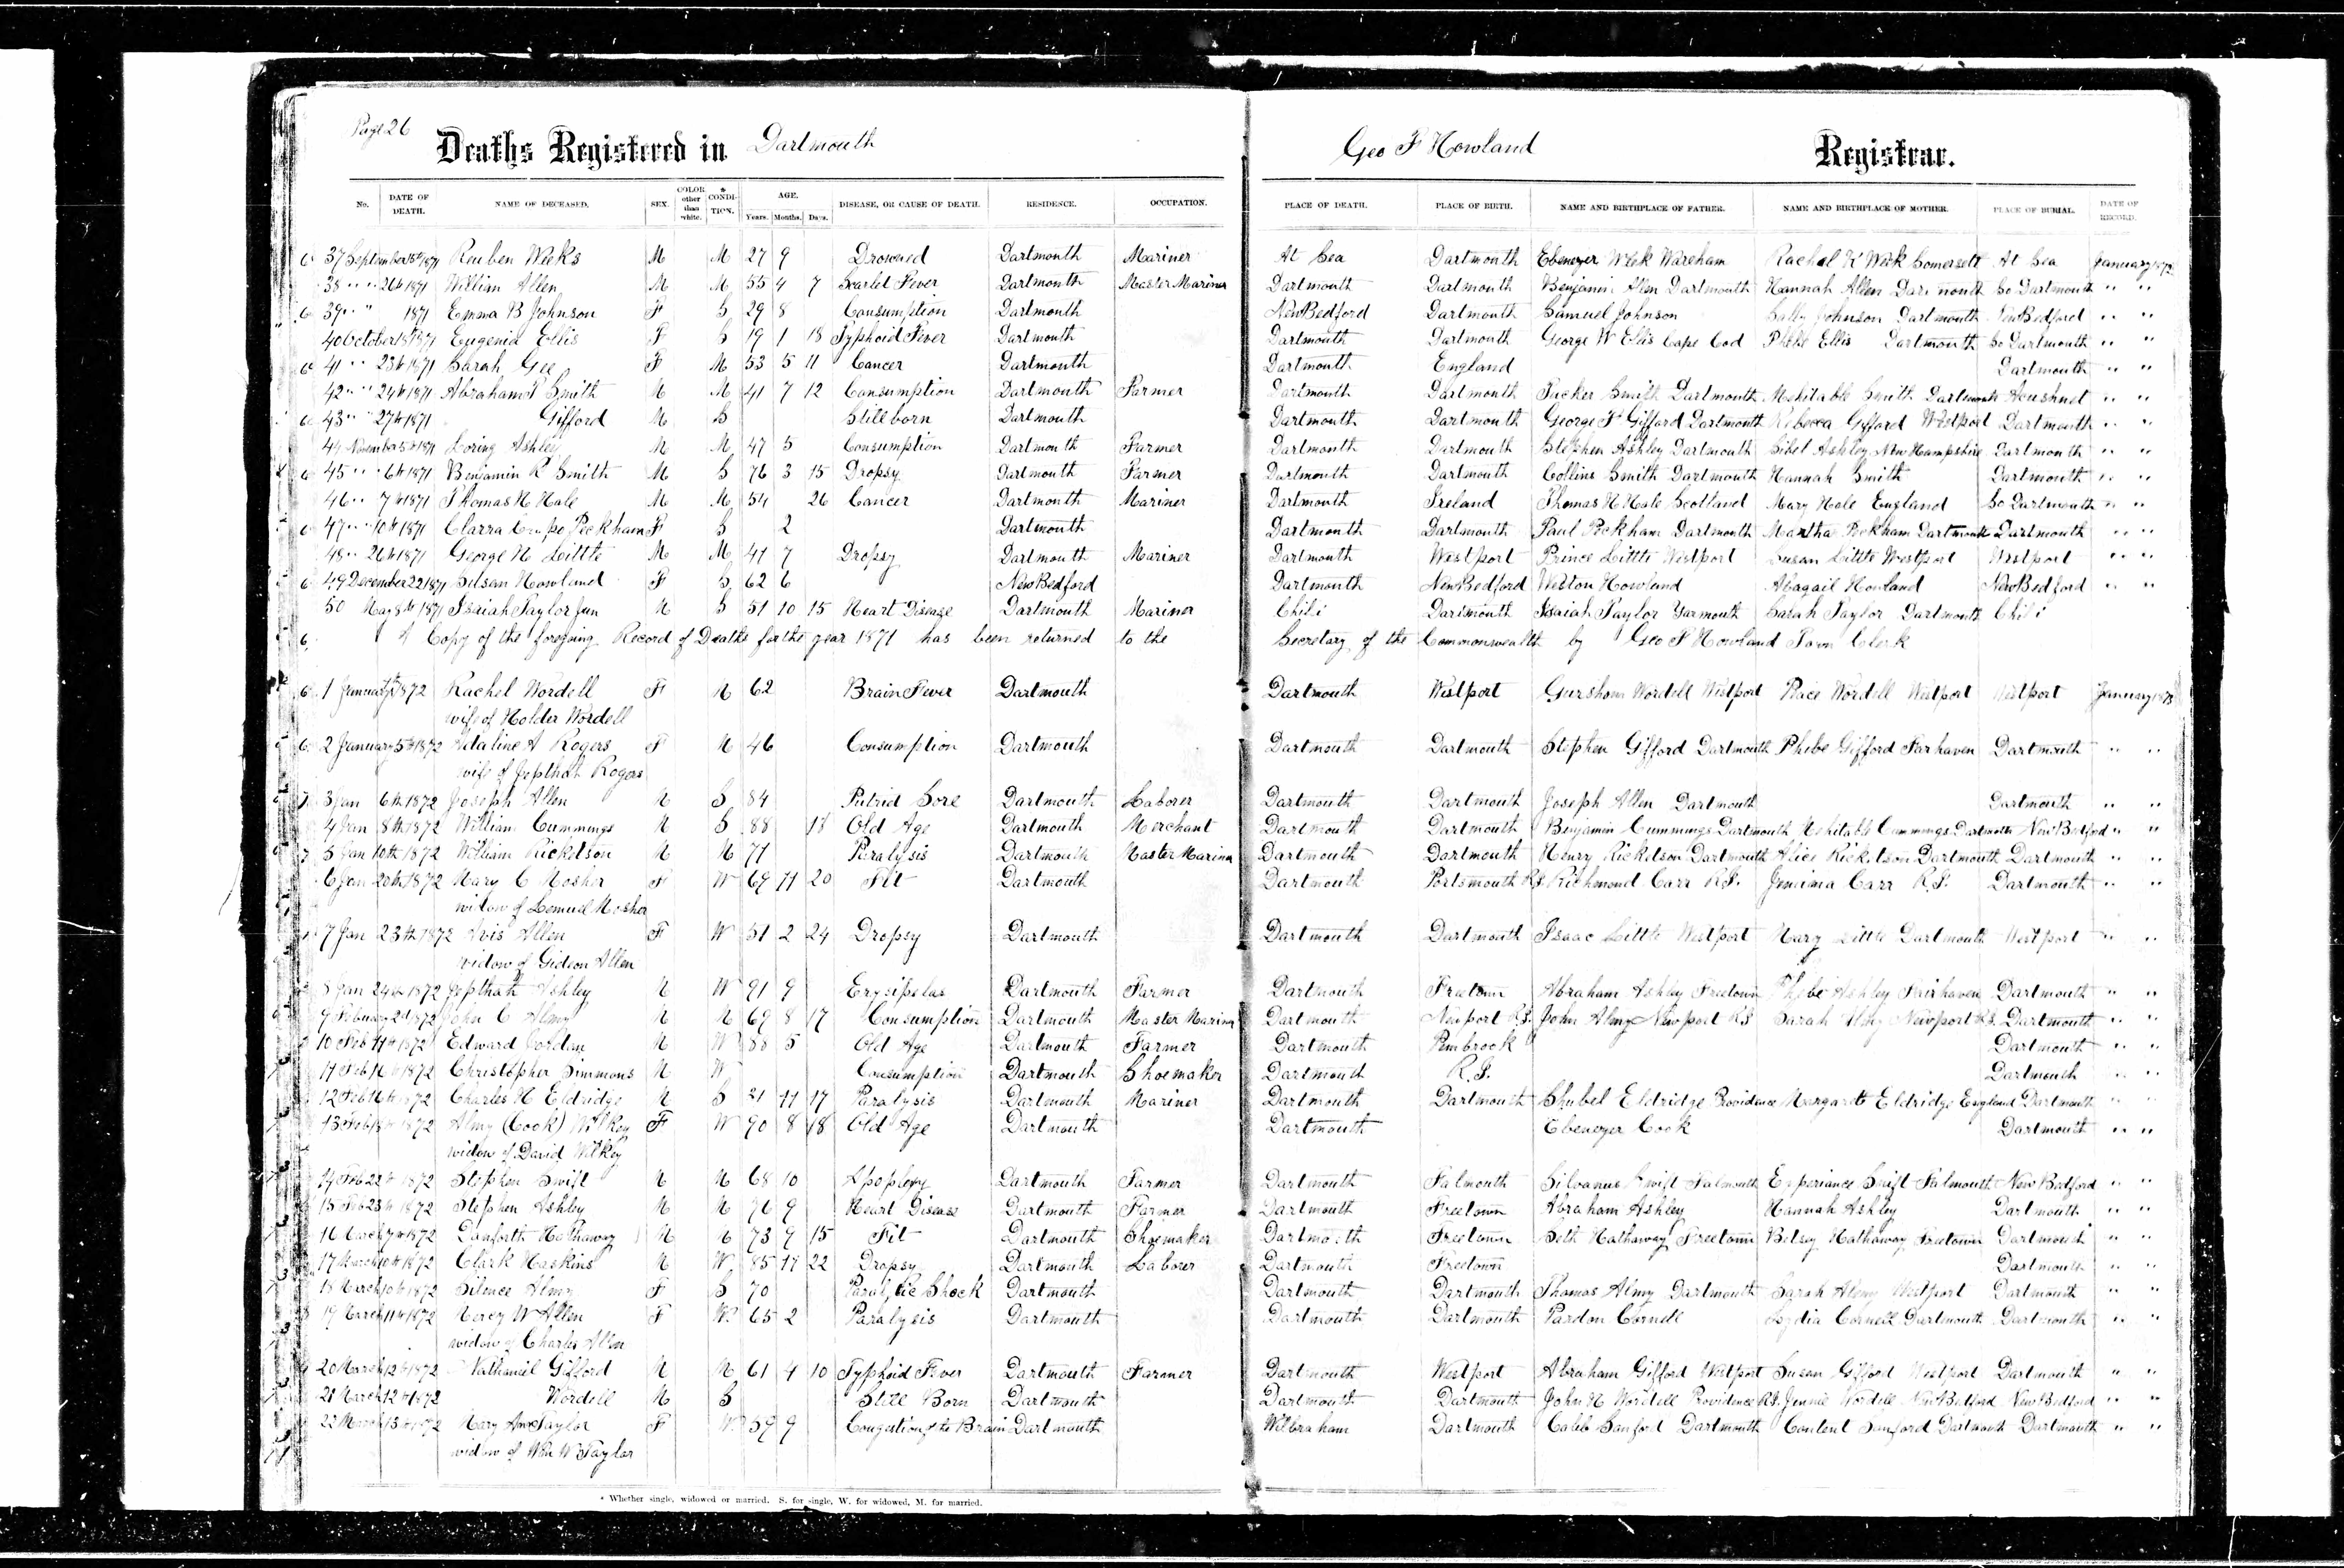 Page 26
Deaths Registered in Dartmouth Geo F Howland Registrar.
No. DATE OF DEATH. NAME OF DECEASED. SEX. COLOR other than white. * CONDITION. AGE. Years. Months. Days. DISEASE, OR CAUSE OF DEATH. RESIDENCE. OCCUPATION. PLACE OF DEATH. PLACE OF BIRTH. NAME AND BIRTHPLACE OF FATHER. NAME AND BIRTHPLACE OF MOTHER. PLACE OF BURIAL. DATE OF RECORD.
37 September 1871 Reuben Weeks M M 27 9 Drowned Dartmouth Mariner At Sea Dartmouth Ebenezer Week Wareham Rachel Week Somersett At Sea January 1872
38 " " 26th 1871 William Allen M M 55 4 7 Scarlet Fever Dartmouth Master Mariner Dartmouth Dartmouth Benjamin Allen Dartmouth Hannah Allen Dartmouth So Dartmouth " "
39 " " 1871 Emma B Johnson F S 29 8 Consumption Dartmouth New Bedford Dartmouth Samuel Johnson Sally Johnson Dartmouth New Bedford " "
40 October 1871 Eugenia Ellis F S 19 1 18 Typhoid Fever Dartmouth Dartmouth Dartmouth George W Ellis Cape Cod Ellis Dartmouth So Dartmouth " "
41 " " 23th 1871 Sarah Gee F M 53 5 11 Cancer Dartmouth Dartmouth England Dartmouth " "
42 " " 24th 1871 Abraham Smith M M 41 7 12 Consumption Dartmouth Farmer Dartmouth Dartmouth Tucker Smith Dartmouth Mehitable Smith Dartmouth Acushnet " "
43 " " 27th 1871 Gifford M S Stillborn Dartmouth Dartmouth Dartmouth George F Gifford Dartmouth Rebecca Gifford Westport Dartmouth " "
44 November 5th 1871 Loring Ashley M M 47 5 Consumption Dartmouth Farmer Dartmouth Dartmouth Stephen Ashley Dartmouth Sibel Ashley New Hampshire Dartmouth " "
45 " " 6th 1871 Benjamin R Smith M S 76 3 15 Dropsy Dartmouth Farmer Dartmouth Dartmouth Collins Smith Dartmouth Hannah Smith Dartmouth " "
46 " " 7th 1871 Thomas H Hale M M 54 26 Cancer Dartmouth Mariner Dartmouth Ireland Thomas H Hale Scotland Mary Hale England So Dartmouth " "
47 " " 10th 1871 Clarra Peckham F S 2 Dartmouth Dartmouth Dartmouth Paul Peckham Dartmouth Martha Peckham Dartmouth Dartmouth " "
48 " " 26th 1871 George H Little M M 47 7 Dropsy Dartmouth Mariner Dartmouth Westport Prince Little Westport Susan Little Westport Westport " "
49 December 22 1871 Susan Howland F S 62 6 New Bedford Dartmouth New Bedford Weston Howland Abagail Howland New Bedford " "
50 May 8th 1871 Isaiah Taylor Jun M S 51 10 15 Heart Disease Dartmouth Mariner Chili Dartmouth Isaiah Taylor Yarmouth Sarah Taylor Dartmouth Chili
A Copy of the foregoing Record of Deaths for the year 1871 has been returned to the Secretary of the Commonwealth by Geo F Howland Town Clerk
1 January 1872 Rachel Wordell F M 62 Brain Fever Dartmouth Dartmouth Westport Gursham Wordell Westport Wordell Westport Westport January 1873
wife of Holder Wordell
2 January 5th 1872 Adaline A Rogers F M 46 Consumption Dartmouth Dartmouth Dartmouth Stephen Gifford Dartmouth Phebe Gifford Fairhaven Dartmouth " "
wife of Jepthah Rogers
3 Jan 6th 1872 Joseph Allen M S 84 Putrid Sore Dartmouth Laborer Dartmouth Dartmouth Joseph Allen Dartmouth Dartmouth " "
4 Jan 8th 1872 William Cummings M S 88 18 Old Age Dartmouth Merchant Dartmouth Dartmouth Benjamin Cummings Dartmouth Mehitable Cummings Dartmouth New Bedford " "
5 Jan 10th 1872 William Ricketson M M 77 Paralysis Dartmouth Master Mariner Dartmouth Dartmouth Henry Ricketson Dartmouth Alice Ricketson Dartmouth Dartmouth " "
6 Jan 20th 1872 Mary C Mosher F W 69 11 20 Fit Dartmouth Dartmouth Portsmouth R.I. Richmond Carr R.I. Jemima Carr R.I. Dartmouth " "
widow of Lemuel Mosher
7 Jan 23th 1872 Avis Allen F W 51 2 24 Dropsy Dartmouth Dartmouth Dartmouth Isaac Little Westport Mary Little Dartmouth Westport " "
widow of Gideon Allen
8 Jan 24th 1872 Jepthah Ashley M W 91 9 Erysipelas Dartmouth Farmer Dartmouth Freetown Abraham Ashley Freetown Phebe Ashley Fairhaven Dartmouth " "
9 Febuary 2d 1872 John C Almy M M 69 8 17 Consumption Dartmouth Master Mariner Dartmouth Newport R.I. John Almy Newport R.I. Sarah Almy Newport R.I. Dartmouth " "
10 Feb 1872 Edward M W 88 5 Old Age Dartmouth Farmer Dartmouth Pembrook Dartmouth " "
11 Feb 1872 Christopher Simmons M W Consumption Dartmouth Shoemaker Dartmouth R.I. Dartmouth " "
12 Feb 16th 1872 Charles H Eldridge M S 21 11 17 Paralysis Dartmouth Mariner Dartmouth Dartmouth Shubel Eldridge Providence Margarett Eldridge England Dartmouth " "
13 Feb 18th 1872 Almy (Cook) Wilkey F W 90 8 18 Old Age Dartmouth Dartmouth Ebenezer Cook Dartmouth " "
widow of David Wilkey
14 Feb 22th 1872 Stephen Swift M M 68 10 Apoplexy Dartmouth Farmer Dartmouth Falmouth Silvanus Swift Falmouth Experiance Swift Falmouth New Bedford " "
15 Feb 23th 1872 Stephen Ashley M M 76 9 Heart Disease Dartmouth Farmer Dartmouth Freetown Abraham Ashley Hannah Ashley Dartmouth " "
16 March 1872 Danforth Hathaway M M 73 9 15 Fit Dartmouth Shoemaker Dartmouth Freetown Seth Hathaway Freetown Betsey Hathaway Freetown Dartmouth " "
17 March 10th 1872 Clark Haskins M W 85 11 22 Dropsy Dartmouth Laborer Dartmouth Freetown Dartmouth " "
18 March 10th 1872 Silence Almy F S 70 Paralytic Shock Dartmouth Dartmouth Dartmouth Thomas Almy Dartmouth Sarah Almy Westport Dartmouth " "
19 March 11th 1872 Mercy W Allen F W 65 2 Paralysis Dartmouth Dartmouth Dartmouth Pardon Cornell Lydia Cornell Dartmouth Dartmouth " "
widow of Charles Allen
20 March 12th 1872 Nathaniel Gifford M M 61 4 10 Typhoid Fever Dartmouth Farmer Dartmouth Westport Abraham Gifford Westport Susan Gifford Westport Dartmouth " "
21 March 12th 1872 Wordell M S Still Born Dartmouth Dartmouth Dartmouth John H Wordell Providence R.I. Jennie Wordell New Bedford New Bedford " "
22 March 13th 1872 Mary Ann Taylor F W 59 9 Congestion of the Brain Dartmouth Wilbraham Dartmouth Caleb Sanford Dartmouth Content Sanford Dartmouth Dartmouth " "
widow of Wm W Taylor
* Whether single, widowed or married. S. for single, W. for widowed, M. for married.